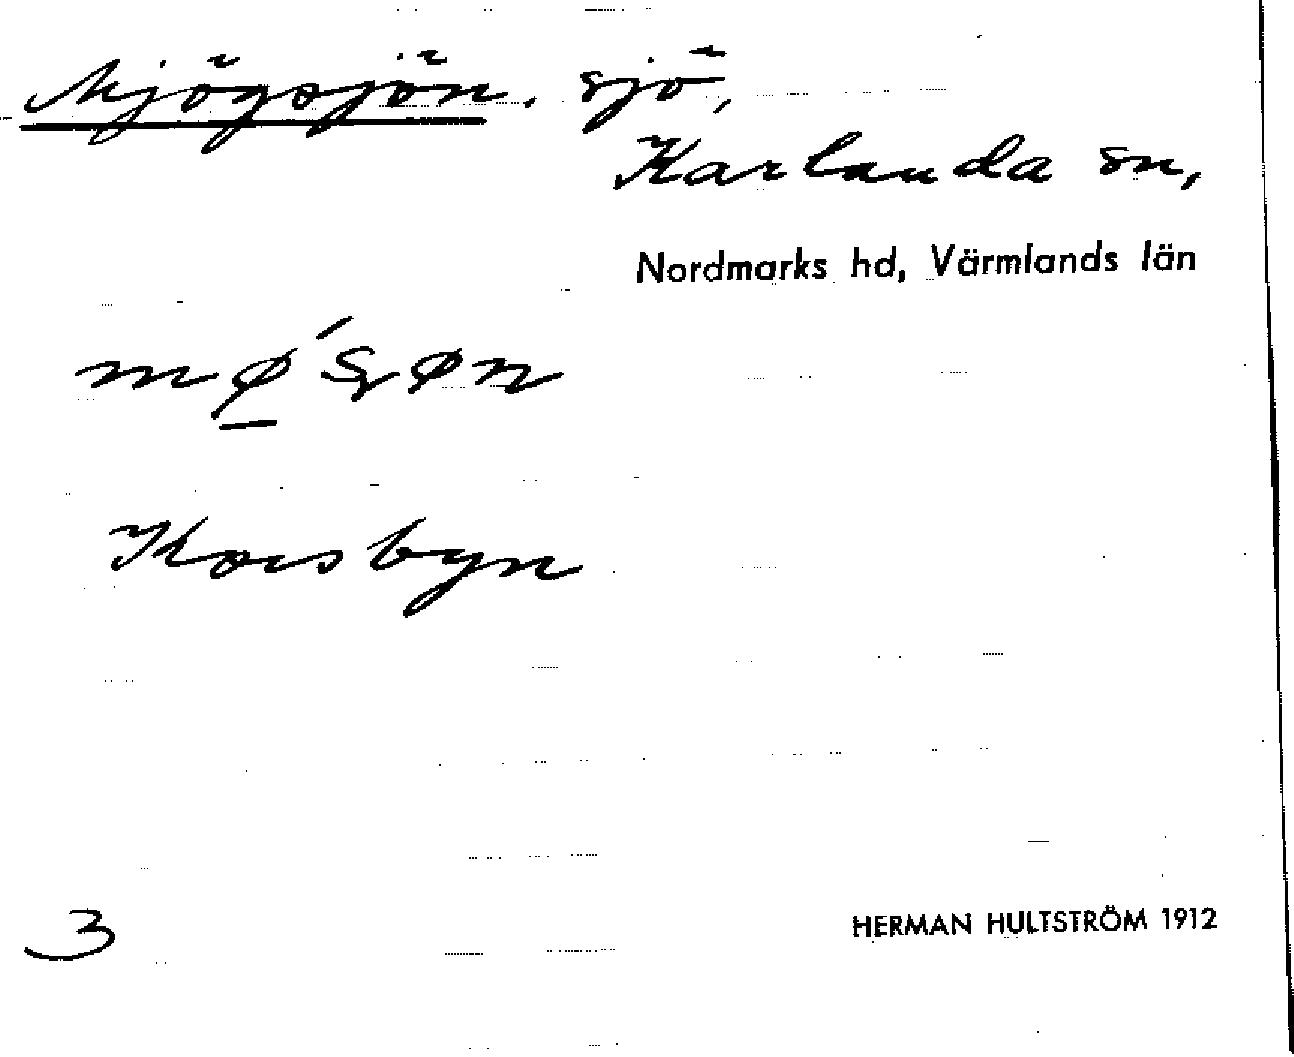 Mjögsjön, sjö,
Karlanda sn,
Nordmarks hd, Värmlands län
Korsbyn
3
HERMAN HULTSTRÖM 1912